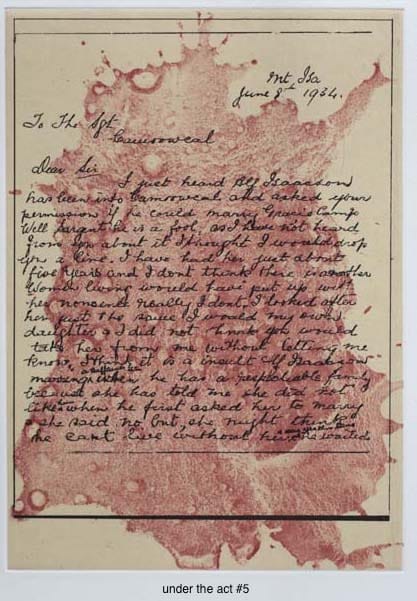 Mt, Isa
June 8th 1934.
To The Sgt
Camooweal
Dear Sir
I just heard Alf Isaacson
has been into Camooweal and asked your
permission if he could marry Gracie Camp
Well Sargant he is a fool, as I have not heard
from you about it I thought I would drop
you a line. I have had her just about
five years and I dont thank there is another
Women living would have put up with
her noncinet really I dont, I looked after
her just the same I would my own
daughter & I did not think you would
take her from me without letting me
know, I think it is a insult Alf Isaacson
he has a respectable family
because she has told me she did not
like when he first asked her to marry
she said no but she might
he cant live without her she waited
under the act #5